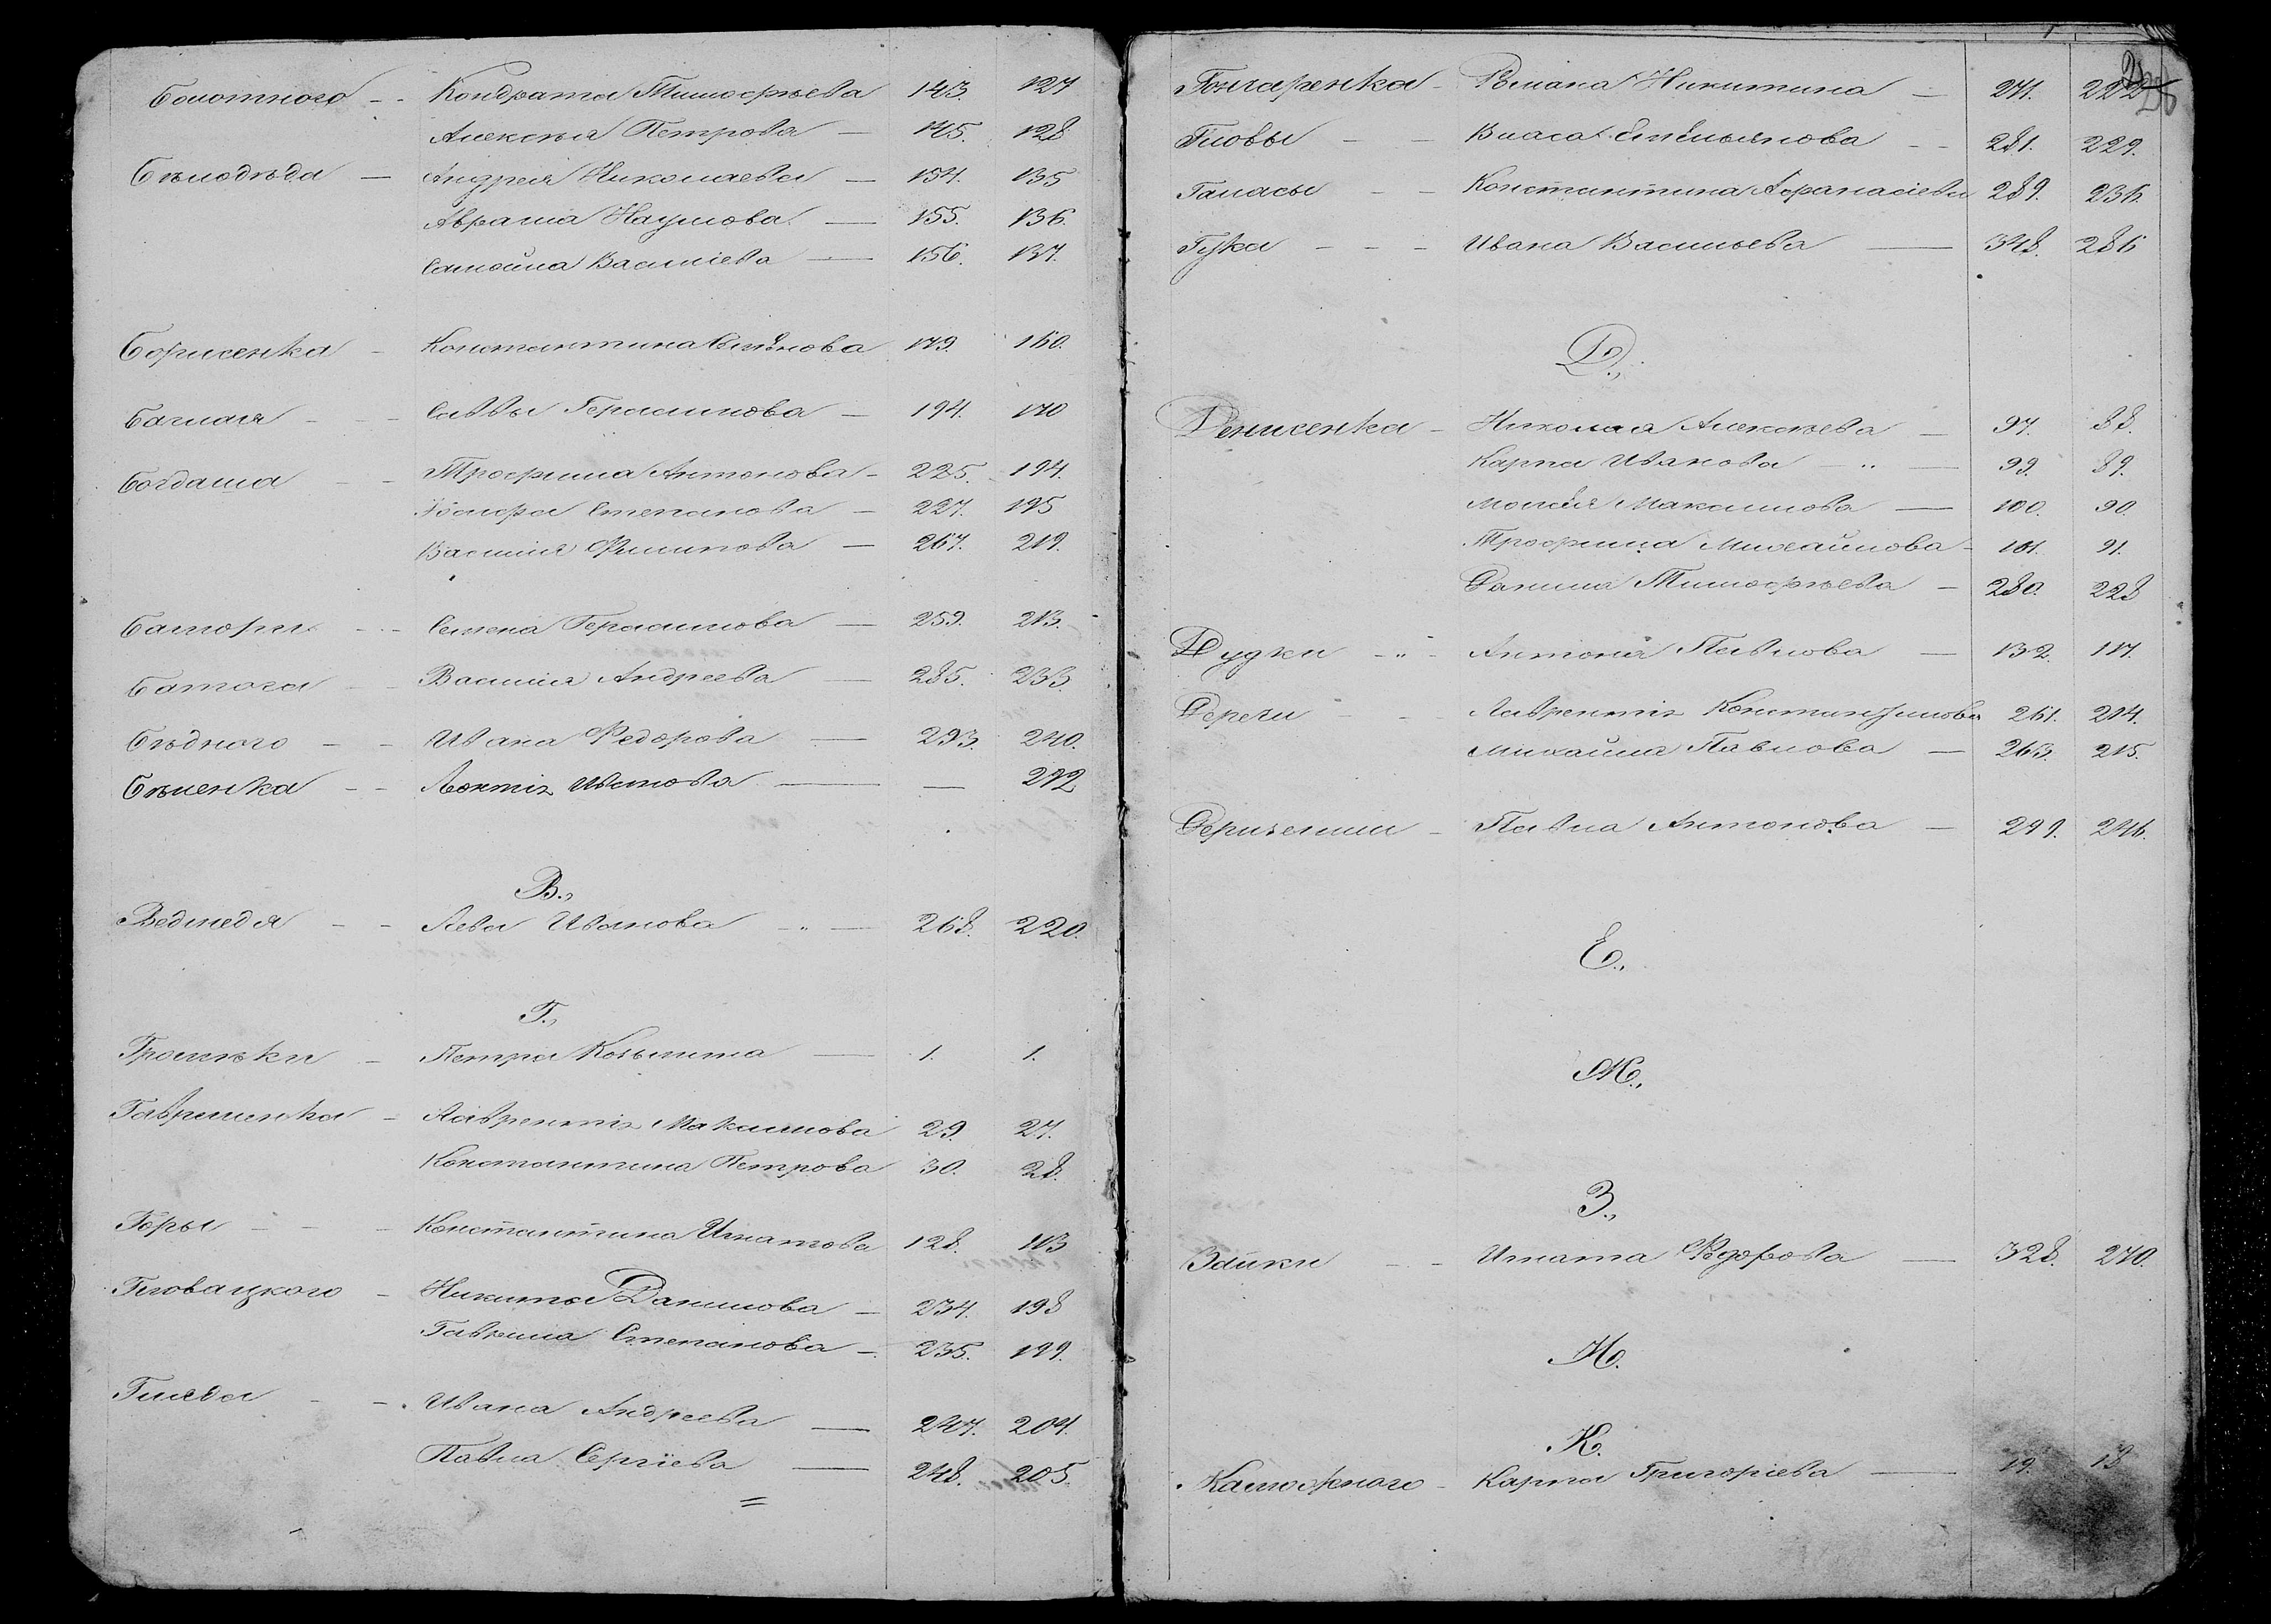 Болотного -- Кондрата Тимофѣева 143. 127
Алексѣя Петрова — 145. 128
Бѣлодѣда — Андрея Николаева — 154. 135
Абрама Наумова — 155. 136.
Самойла Василіева — 156. 137.
Борисенка - Константина Семёнова 179. 160.
Багмая - - Саввы Герасимова — 194. 170
Богдана - - Трофима Антонова - 225. 194.
Степанова — 227. 195
Василія Филипова — 267. 219.
Семена Герасимова — 259. 213.
Батога - - Василія Андреева — 285. 233.
Бѣднаго - - Ивана Федорова — 293. 240.
Бѣленка - - Леонтія Иванова — — 272
В.,
Ведмедя - - Льва Иванова - " — 268. 220.
Г.,
Громѣки - Петра Козьмина — 1. 1.
Гавриленка - Лаврентія Максимова 29. 27.
Константина Петрова 30. 28.
Горы - - - Константина Игнатова 128. 113
Гловацкого - Никиты Данилова — 234. 198
Гаврила Степанова — 235. 199.
Гилява - - Ивана Андреева — 247. 204.
Павла Сергіева — 248. 205.
Гончаренка - Романа Никитина — 271. 222
Гловы - - Власа Емельянова - - 281. 229.
Галасы - - Константина Афанасіева 289. 236.
Гузка - - - Ивана Васильева — 348. 286
Д.,
Денисенка - Николая Алексѣева — 97. 88.
Карпа Иванова - " — 99. 89.
Моисея Максимова — 100. 90.
Трофима Михайлова - 101. 91.
Данила Тимофѣева — 280. 228
Дудки - " - Антона Павлова — 132. 117.
Дереги - - Лаврентія Константинова 261. 214.
Михайла Павлова — 263. 215.
Павла Антонова — 299. 246.
Е.,
Ж.,
З.,
Заики - - Игната Федорова — 328. 270.
И.
К.
Карпа Григоріева — 19. 18